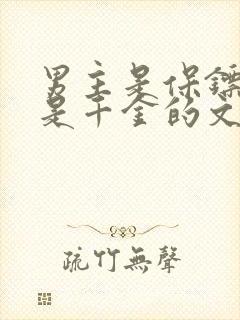 男主是保镖
是千金的文
疏竹無聲